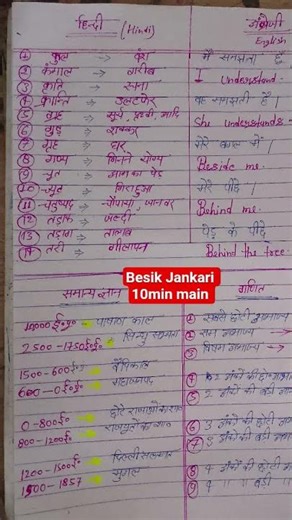 हिन्दी (Hindi)
① कुल → वंश
② कंगाल → गरीब
③ कृति → रचना
④ क्रान्ति → उलटफेर
⑤ ग्रह → सूर्य, पृथ्वी, आदि
⑥ गुड़ → शक्कर
⑦ गृह → घर
⑧ गण्य → गिनने योग्य
⑨ चूत → आम का पेड़
⑩ च्युत → गिरा हुआ
⑪ चतुष्पद → चौपाया, जानवर
⑫ तड़ाक → जल्दी
⑬ तड़ाग → तालाब
⑭ तरी → गीलापन
अंग्रेजी
English
मैं समझता हूँ
I understand.
वह समझती है।
She understands.
मेरे बगल में।
Beside me.
मेरे पीछे।
Behind me.
पेड़ के पीछे
Behind the tree.
Besik Jankari
10min main
सामान्य ज्ञान
10000 ई०पू० पाषाण काल
2500 - 1750 ई०पू० सिन्धु सभ्यता
1500 - 600 ई० वैदिक काल
600 - 0 ई०पू० महाजनपद
0 - 800 ई० छोटे राजाओं का राज्य
800 - 1200 ई० राजपूतों का राज्य
1200 - 1500 ई० दिल्ली सल्तनत
1500 - 1857 मुगल
गणित
① सबसे छोटी
② सम
③ विषम
④ 2 अंकों की छोटी
⑤ 2 अंकों की बड़ी
⑥ 3 अंकों की छोटी
⑦ 3 अंकों की बड़ी
⑧ 4 अंकों की छोटी
⑨ 4 " " बड़ी